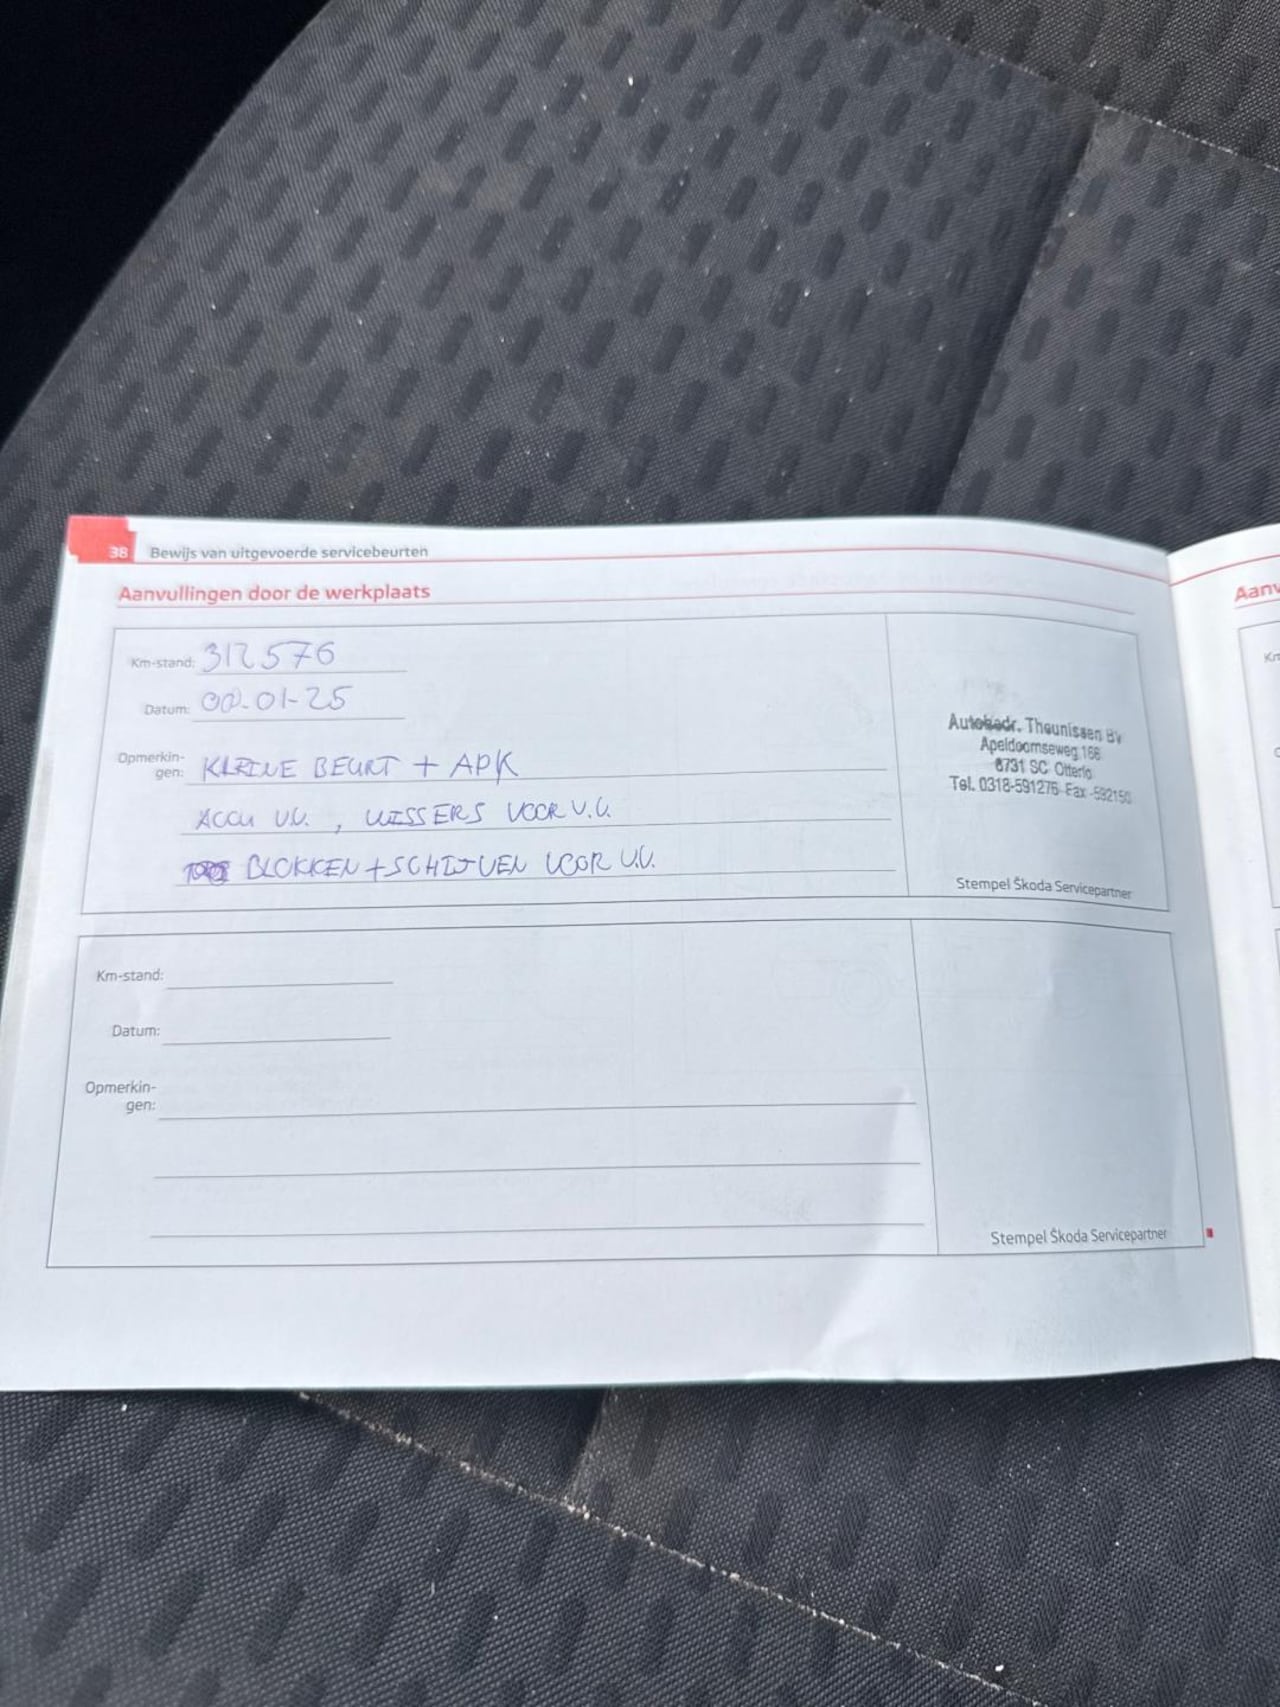 38 Bewijs van uitgevoerde servicebeurten
Aanvullingen door de werkplaats
Aanv
Km-stand: 312576
Datum: -01-25
Opmerkin-
gen: KLEINE BEURT + APK
ACCU V.V. , WISSERS VOOR V.V.
BLOKKEN + SCHIJVEN VOOR V.V.
Autobedr. Theunissen BV
Apeldoornseweg 166
6731 SC Otterlo
Tel. 0318-591276 Fax -592150
Stempel Škoda Servicepartner
Km-stand:
Datum:
Opmerkin-
gen:
Stempel Škoda Servicepartner